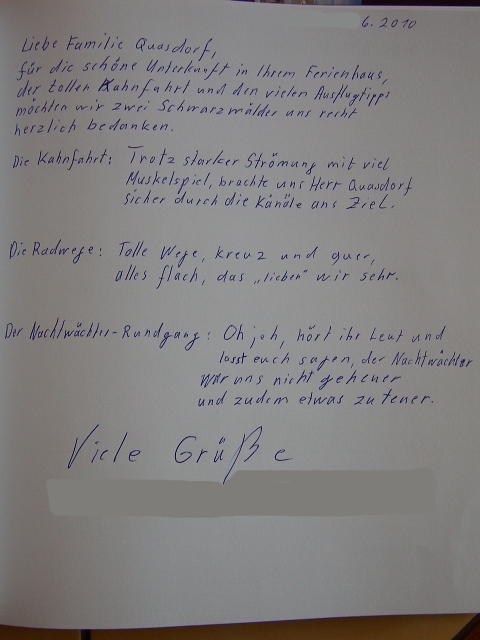 6. 2010
Liebe Familie Quasdorf,
für die schöne Unterkunft in Ihrem Ferienhaus,
der tollen Kahnfahrt und den vielen Ausflugtipps
möchten wir zwei Schwarzwälder uns recht
herzlich bedanken.
Die Kahnfahrt: Trotz starker Strömung mit viel
Muskelspiel, brachte uns Herr Quasdorf
sicher durch die Kanäle ans Ziel.
Die Radwege: Tolle Wege, kreuz und quer,
alles flach, das „lieben" wir sehr.
Der Nachtwächter-Rundgang: Oh jeh, hört ihr Leut und
lasst euch sagen, der Nachtwächter
war uns nicht geheuer
und zudem etwas zu teuer.
Viele Grüße